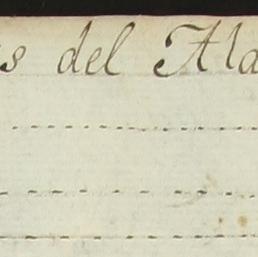 s del Ala